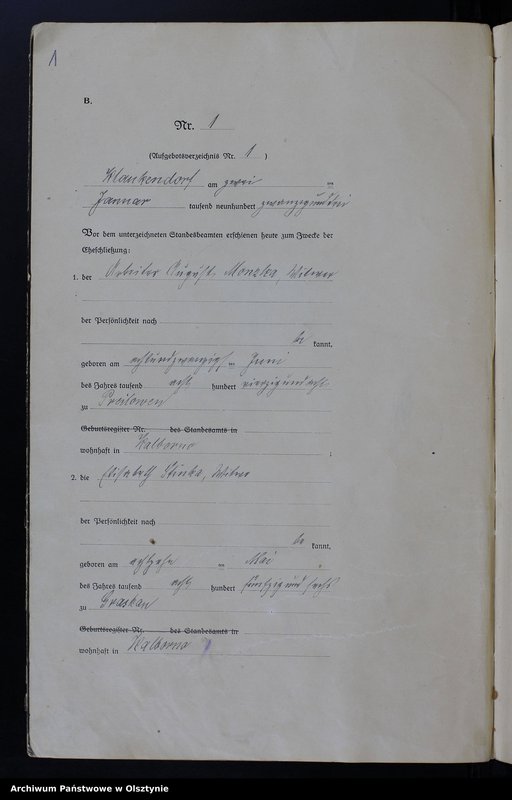 1
B.
Nr. 1
(Aufgebotsverzeichnis Nr. 1 )
Klaukendorf am zwei ten
Januar tausend neunhundert zwanzigunddrei
Vor dem unterzeichneten Standesbeamten erschienen heute zum Zwecke der
Eheschließung:
1. der Arbeiter August Monzka, Witwer
der Persönlichkeit nach
be kannt,
geboren am achtundzwanzigsten Juni
des Jahres tausend acht hundert vierzigundacht
zu Preilowen
Geburtsregister Nr. des Standesamts in
wohnhaft in Kalborno ;
2. die Elisabeth Stinka, Witwe
der Persönlichkeit nach
be kannt,
geboren am achtzehn ten Mai
des Jahres tausend acht hundert fünfzigundsechs
zu Graskau
Geburtsregister Nr. des Standesamts in
wohnhaft in Kalborno
Archiwum Państwowe w Olsztynie